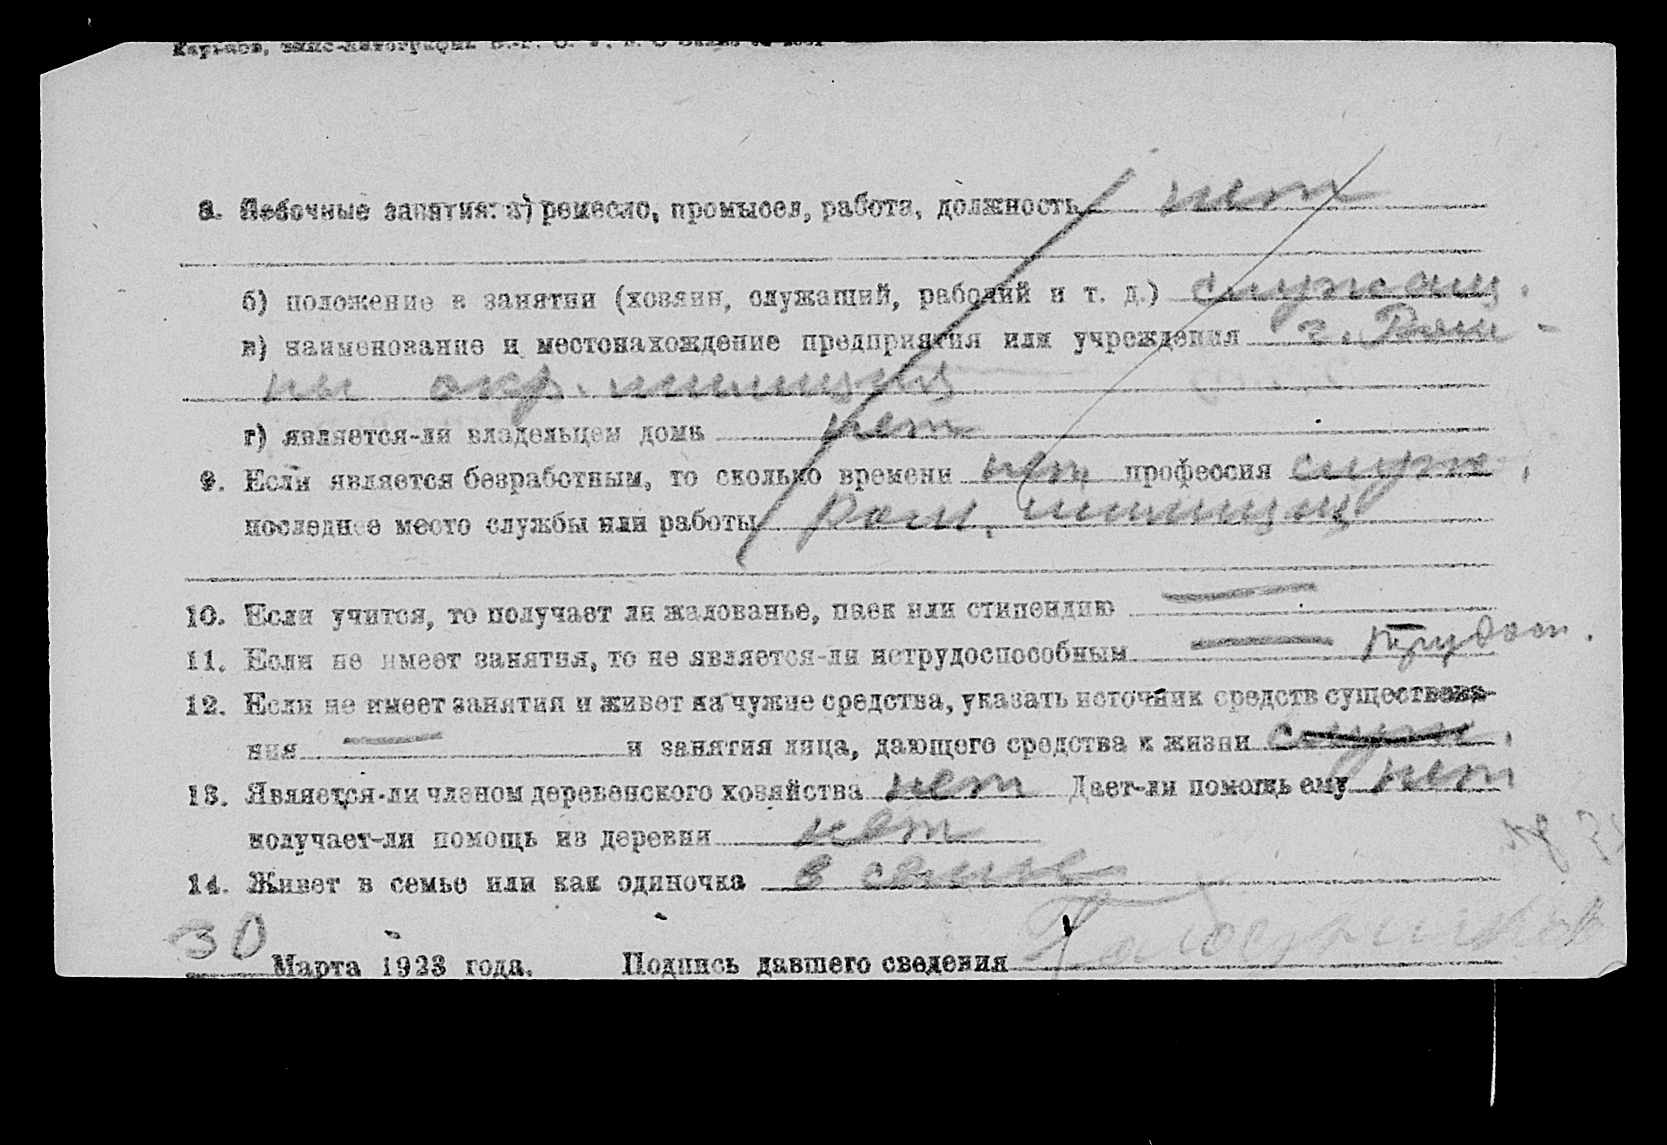 8. Побочные занятия: а) ремесло, промысел, работа, должность нет
б) положение в занятии (хозяин, служащий, рабочий и т. д.) служащ.
в) наименование и местонахождение предприятия или учреждения г. Ром-
ны окр. милиция
г) является-ли владельцем дома нет
9. Если является безработным, то сколько времени нет профессия служ.
последнее место службы или работы Ром. милиция
10. Если учится, то получает ли жалованье, паек или стипендию —
11. Если не имеет занятия, то не является-ли нетрудоспособным — трудосп.
12. Если не имеет занятия и живет на чужие средства, указать источник средств существова-
ния — и занятия лица, дающего средства к жизни служ.
13. Является-ли членом деревенского хозяйства нет Дает-ли помощь ему нет
получает-ли помощь из деревни нет
14. Живет в семье или как одиночка в семье
30 Марта 1923 года. Подпись давшего сведения